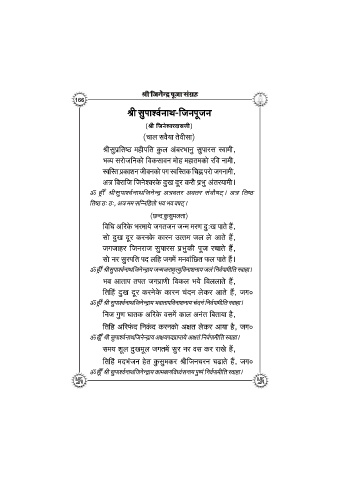 श्री जिनेन्द्र पूजा संग्रह
166
श्री सुपार्श्वनाथ-जिनपूजन
(श्री जिनेश्वरदासजी)
(चाल सवैया तेवीसा)
श्रीसुप्रतिष्ठ महीपति कुल अंबरभानु सुपारस स्वामी,
भव्य सरोजनिको विकसावन मोह महातमको रवि नामी,
स्वस्ति प्रकाशन जीवनको पग स्वस्तिक चिह्न परो जगनामी,
अत्र विराजि जिनेश्वरके दुख दूर करौ प्रभु अंतरयामी।
ॐ ह्रीँ श्रीसुपार्श्वनाथजिनेन्द्र अत्रावतर अवतर संवौषट्। अत्र तिष्ठ
तिष्ठ ठः ठः, अत्र मम सन्निहितो भव भव वषट्।
(छन्द कुसुमलता)
विधि अरिके भरमाये जगतजन जन्म मरण दुःख पाते हैं,
सो दुख दूर करनके कारन उत्तम जल ले आते हैं,
जगजाहर जिनराज सुपारस प्रभुकी पूज रचाते हैं,
सो नर सुरपति पद लहि जगमें मनवांछित फल पाते हैं।
ॐ ह्रीँ श्री सुपार्श्वनाथजिनेन्द्राय जन्मजरामृत्युविनाशनाय जलं निर्वपामीति स्वाहा।
भव आताप तपत जगप्राणी विकल भये विललाते हैं,
तिहिं दुख दूर करनेके कारन चंदन लेकर आते हैं, जग०
ॐ ह्रीँ श्री सुपार्श्वनाथजिनेन्द्राय भवातापविनाशनाय चंदनं निर्वपामीति स्वाहा।
निज गुण घातक अरिके वसमें काल अनंत बिताया है,
तिहि अरिफंद निकंद करनको अक्षत लेकर आया है, जग०
ॐ ह्रीँ श्री सुपार्श्वनाथजिनेन्द्राय अक्षयपदप्राप्तये अक्षतं निर्वपामीति स्वाहा।
समय शूल दुखमूल जगतमें सुर नर वस कर राखे हैं,
तिहिं मदभंजन हेत कुसुमकर श्रीजिनचरन चढाते हैं, जग०
ॐ ह्रीँ श्री सुपार्श्वनाथजिनेन्द्राय कामबाणविध्वंसनाय पुष्पं निर्वपामीति स्वाहा।